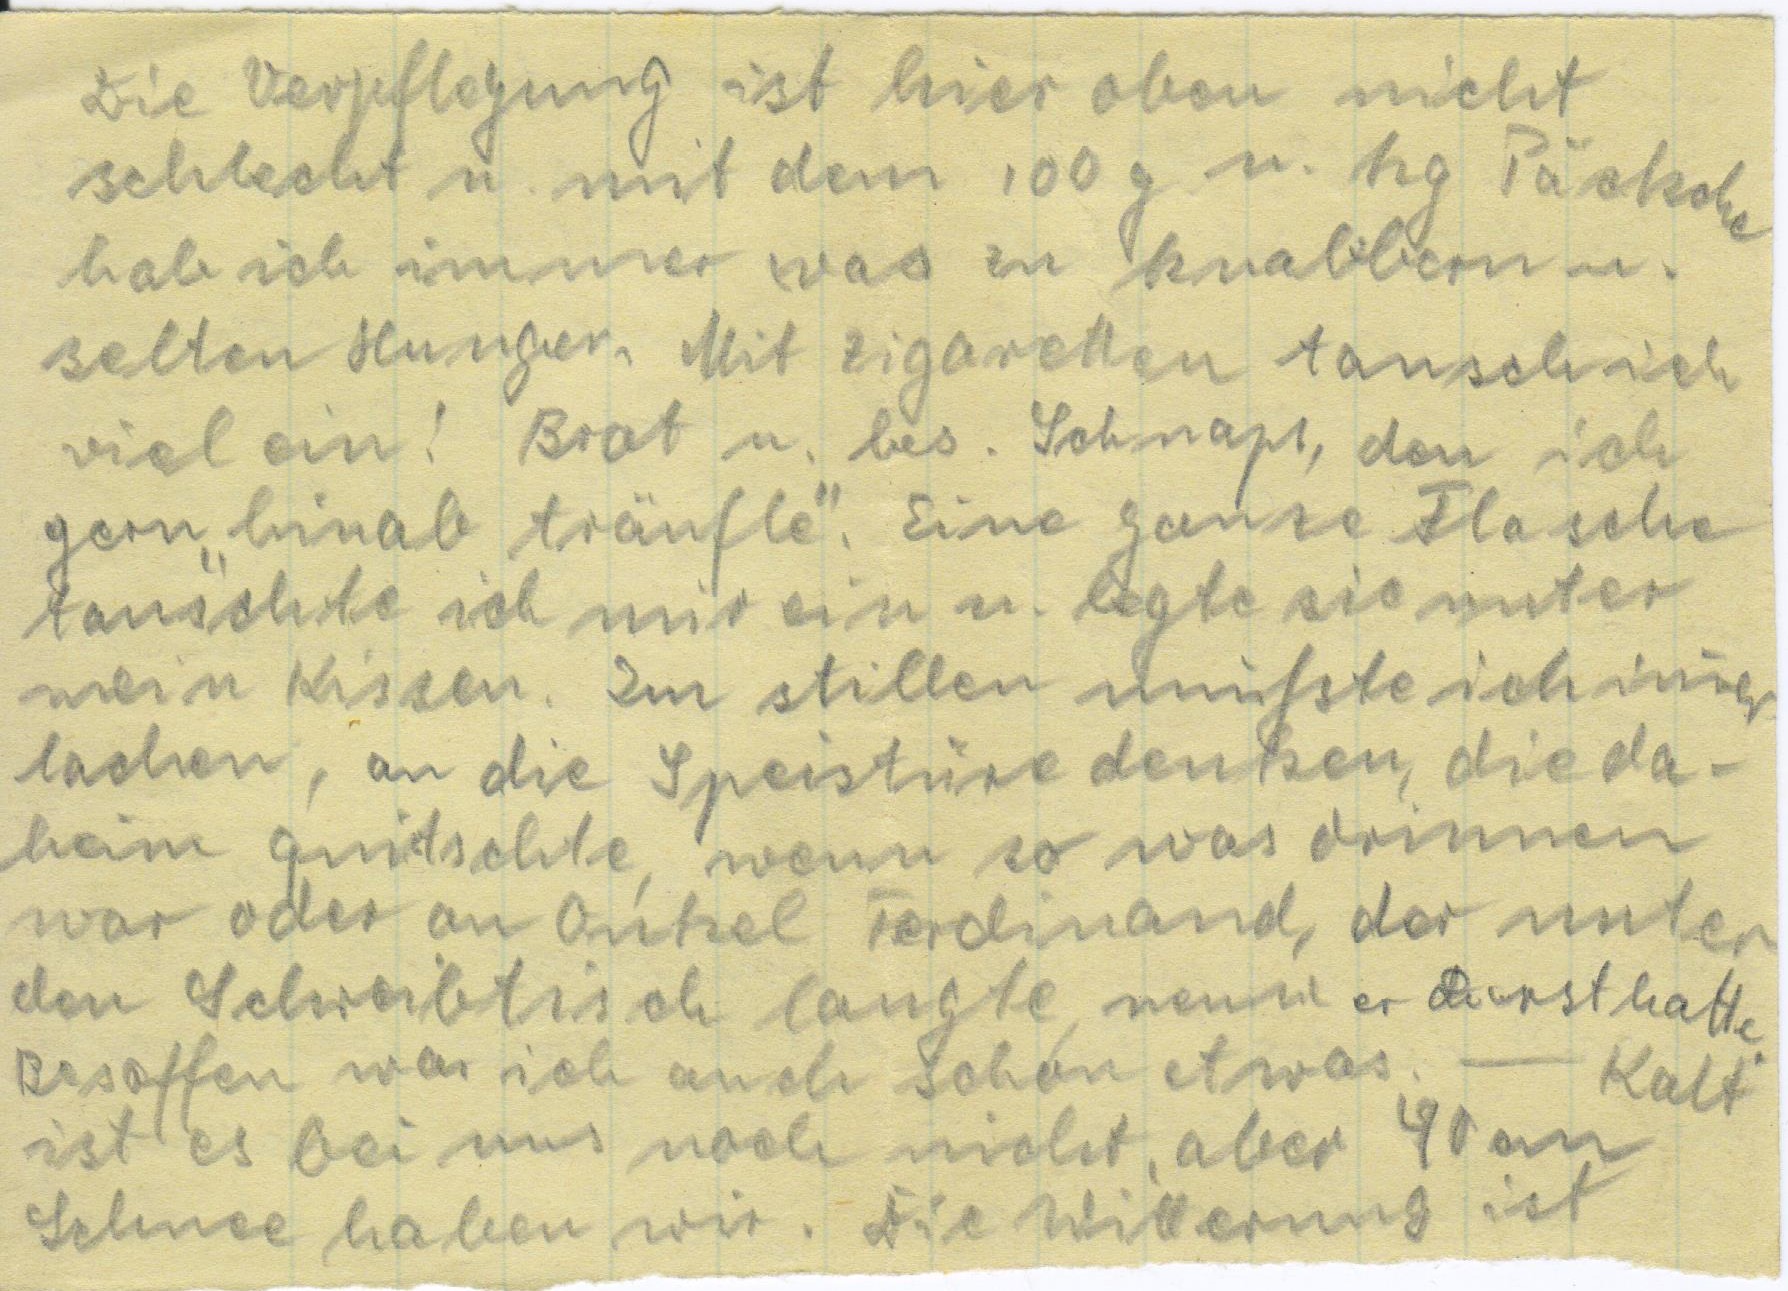 Die Verpflegung ist hier oben nicht
schlecht u. mit dem 100 g u. kg Päckche
hab ich immer was zu knabbern u.
selten Hunger. Mit Zigaretten tausch ich
viel ein! Brot u. bes. Schnaps, den ich
gern „hinab träufle". Eine ganze Flasche
tauschte ich mir ein u. legte sie unter
mein Kissen. Im stillen mußte ich im̄er
lachen, an die Speistüre denken, die da-
heim quitschte, wenn so was drinnen
war oder an Onkel Ferdinand, der unter
den Schreibtisch langte, wenn er Durst hatte.
Besoffen war ich auch schon etwas. — Kalt
ist es bei uns noch nicht, aber 40 cm
Schnee haben wir. Die Witterung ist